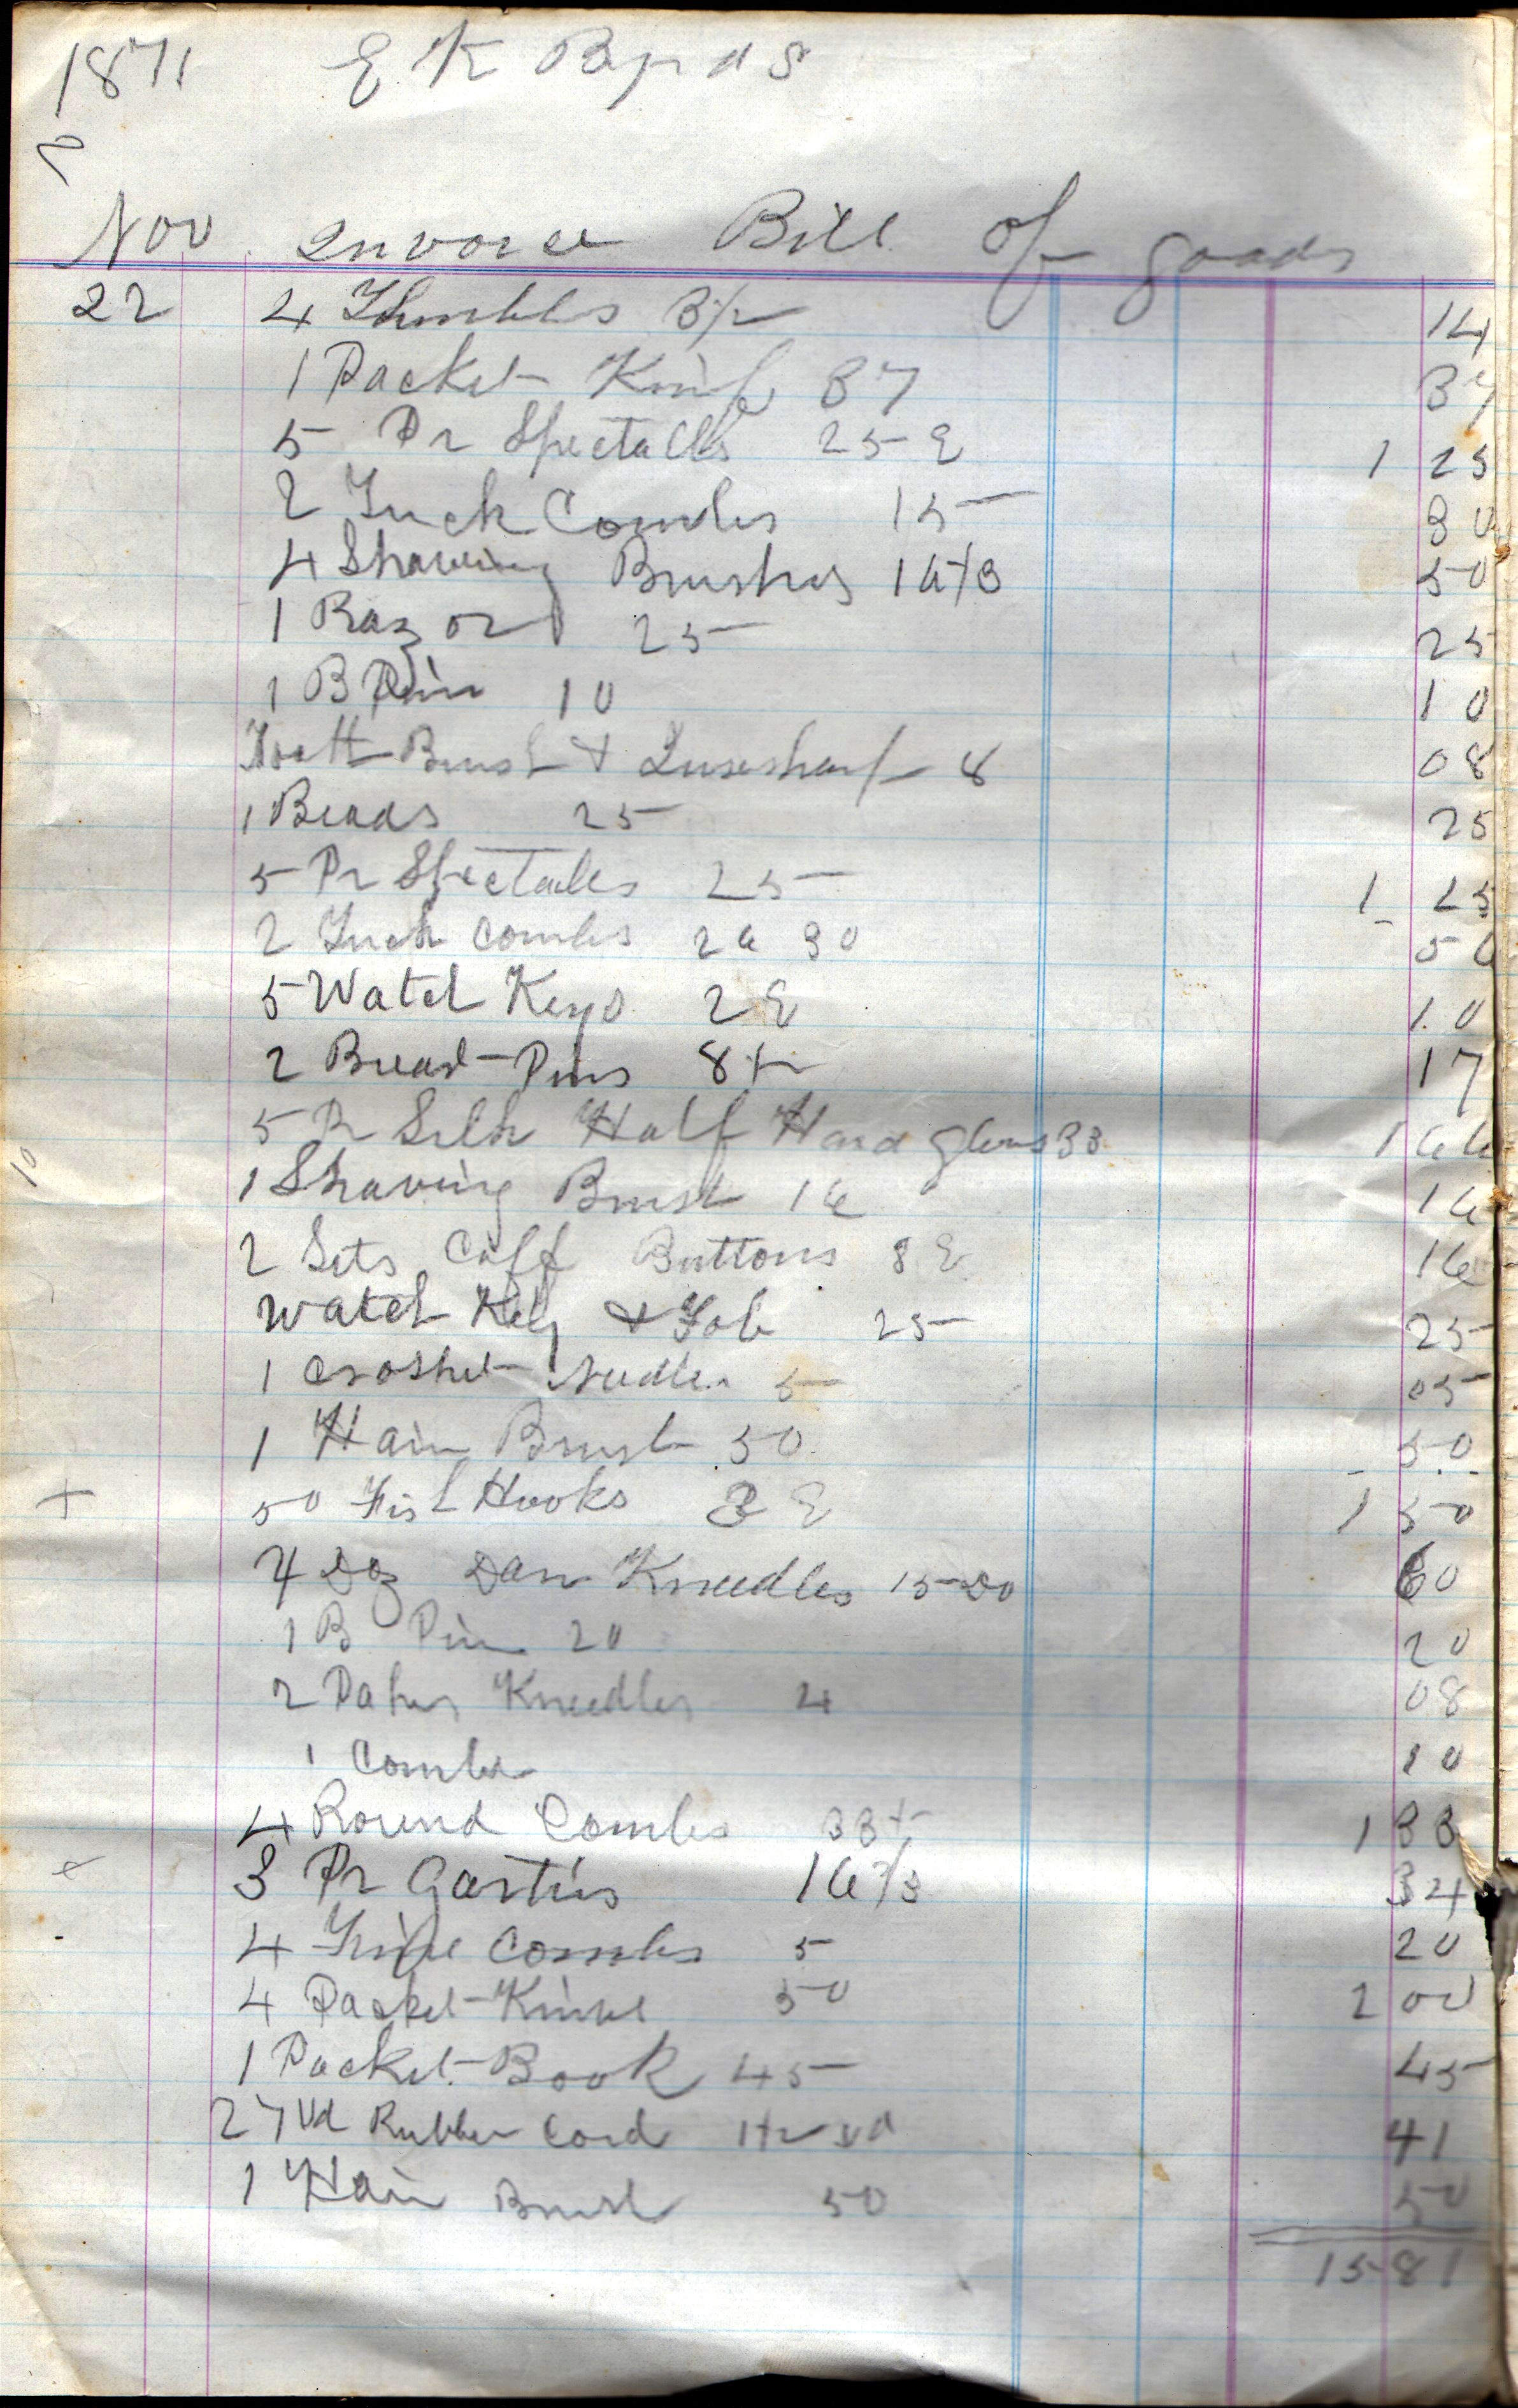 1871 E K Byrds
Nov Invoice Bill of goods
22 4 Thimbles 3 1/2 14
1 Packet Knife 37 37
5 Pr Spectacles 25 E 1 25
2 Tuck Combs 15 30
4 Shaving Brushes 12 1/3 50
1 Razor 25 25
1 B Pin 10 10
Brush + 8 08
1 Beads 25 25
5 Pr Spectacles 25 1 25
2 Tuck Combs 26 30 56
5 Watch Keys 2 E 10
2 Breast Pins 8 1/2 17
5 Pr Silk Half Hand Gloves 33 1 66
1 Shaving Brush 16 16
2 Sets Cuff Buttons 8 E 16
Watch Key + Fob 25 25
1 Croshet Needle 5 05
1 Hair Brush 50 50
+ 50 Fish Hooks 3 E 1 50
4 Doz Darn Kneedles 15 Do 60
1 B Pin 20 20
2 Papers Kneedles 4 08
1 Comb 10
4 Round Combs 33 1 33
3 Pr Garters 16 2/3 34
4 Fine Combs 5 20
4 Packet Knives 50 2 00
1 Packet Book 45 45
27 Yd Rubber Cord 1 1/2 yd 41
1 Hair Brush 50 50
15 81